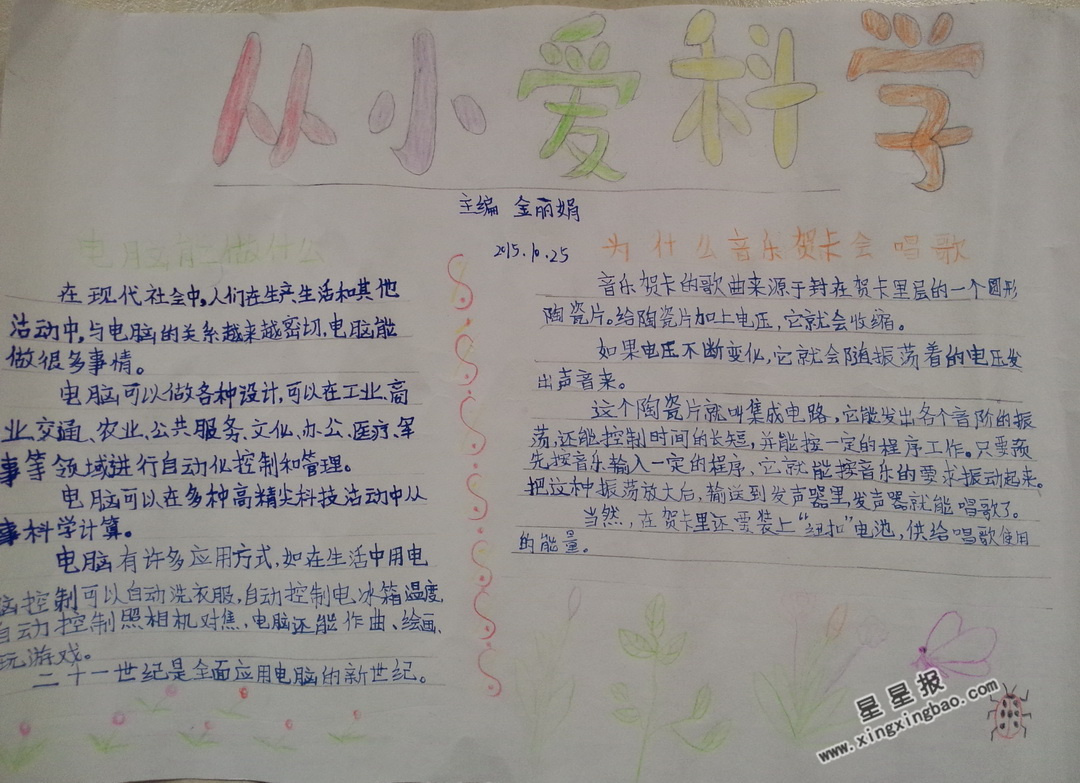 从小爱科学
主编 金丽娟
2015.10.25
电脑能做什么
在现代社会中,人们在生产、生活和其他
活动中,与电脑的关系越来越密切,电脑能
做很多事情。
电脑可以做各种设计,可以在工业、商
业、交通、农业、公共服务、文化、办公、医疗、军
事等领域进行自动化控制和管理。
电脑可以在多种高精尖科技活动中从
事科学计算。
电脑有许多应用方式,如在生活中用电
脑控制可以自动洗衣服,自动控制电冰箱温度,
自动控制照相机对焦,电脑还能作曲、绘画、
玩游戏。
二十一世纪是全面应用电脑的新世纪。
为什么音乐贺卡会唱歌
音乐贺卡的歌曲来源于封在贺卡里层的一个圆形
陶瓷片。给陶瓷片加上电压,它就会收缩。
如果电压不断变化,它就会随振荡着的电压发
出声音来。
这个陶瓷片就叫集成电路,它能发出各个音阶的振
荡,还能控制时间的长短,并能按一定的程序工作。只要预
先按音乐输入一定的程序,它就能按音乐的要求振动起来。
把这种振荡放大后,输送到发声器里,发声器就能唱歌了。
当然,在贺卡里还要装上“纽扣”电池,供给唱歌使用
的能量。
星星报
www.xingxingbao.com